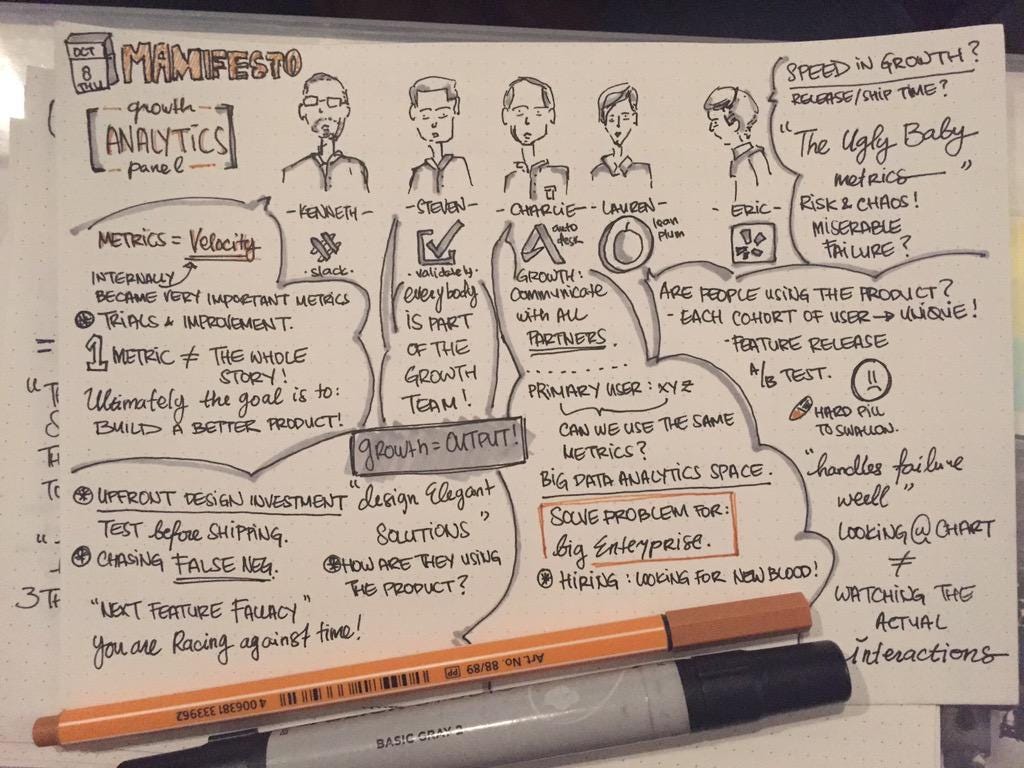 OCT
8
THU
MANIFESTO
growth
ANALYTICS
panel
- KENNETH -
slack.
- STEVEN -
validately.
- CHARLIE -
auto
desk
- LAUREN -
lean
plum
- ERIC -
SPEED IN GROWTH?
RELEASE/SHIP TIME?
"The Ugly Baby
metrics"
RISK & CHAOS!
MISERABLE
FAILURE?
METRICS = Velocity
INTERNALLY
BECAME VERY IMPORTANT METRICS
TRIALS & IMPROVEMENT.
1 METRIC ≠ THE WHOLE
STORY!
Ultimately the goal is to:
BUILD A BETTER PRODUCT!
everybody
IS PART
OF THE
GROWTH
TEAM!
growth = OUTPUT!
GROWTH:
communicate
with ALL
PARTNERS.
PRIMARY USER: XYZ
CAN WE USE THE SAME
METRICS?
BIG DATA ANALYTICS SPACE.
SOLVE PROBLEM FOR:
big Enteyprise.
HIRING: LOOKING FOR NEW BLOOD!
ARE PEOPLE USING THE PRODUCT?
- EACH COHORT OF USER → UNIQUE!
- FEATURE RELEASE
A/B TEST.
HARD PILL
TO SWALLOW.
"handles failure
well"
LOOKING @ CHART
≠
WATCHING THE
ACTUAL
interactions
UPFRONT DESIGN INVESTMENT
TEST before SHIPPING.
CHASING FALSE NEG.
"NEXT FEATURE FALLACY"
you are Racing against time!
"design Elegant
SOLUTIONS"
HOW ARE THEY USING
THE PRODUCT?
Art. No. 88/89
4 006381 333962
BASIC GRAY 2